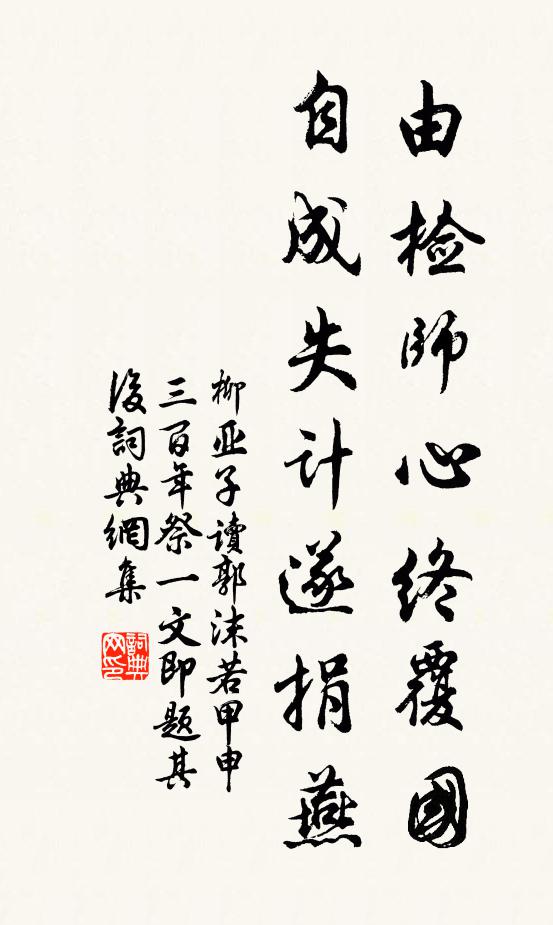 由检師心終覆國
自成失计遂捐燕
柳亚子讀郭沫若甲申
三百年祭一文即題其
後詞典網集
詞典